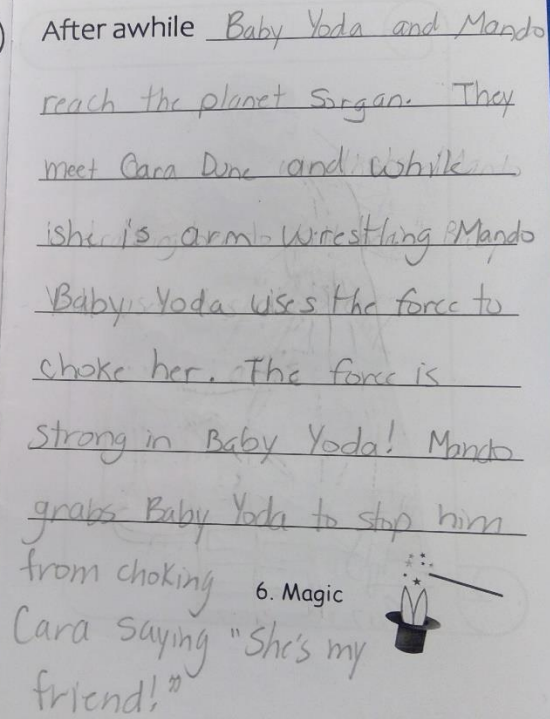 After awhile Baby Yoda and Mando
reach the planet Sorgan. They
meet Cara Dune and whilk
she is arm wrestling Mando
Baby Yoda uses the force to
choke her. The force is
strong in Baby Yoda! Mando
grabs Baby Yoda to stop him
from choking
6. Magic
Cara saying "She's my
friend!"